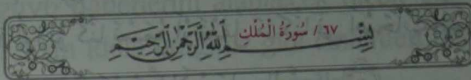 ٦٧ / سُورَةُ الْمُلْكِ
بِسْمِ اللَّهِ الرَّحْمَٰنِ الرَّحِيمِ